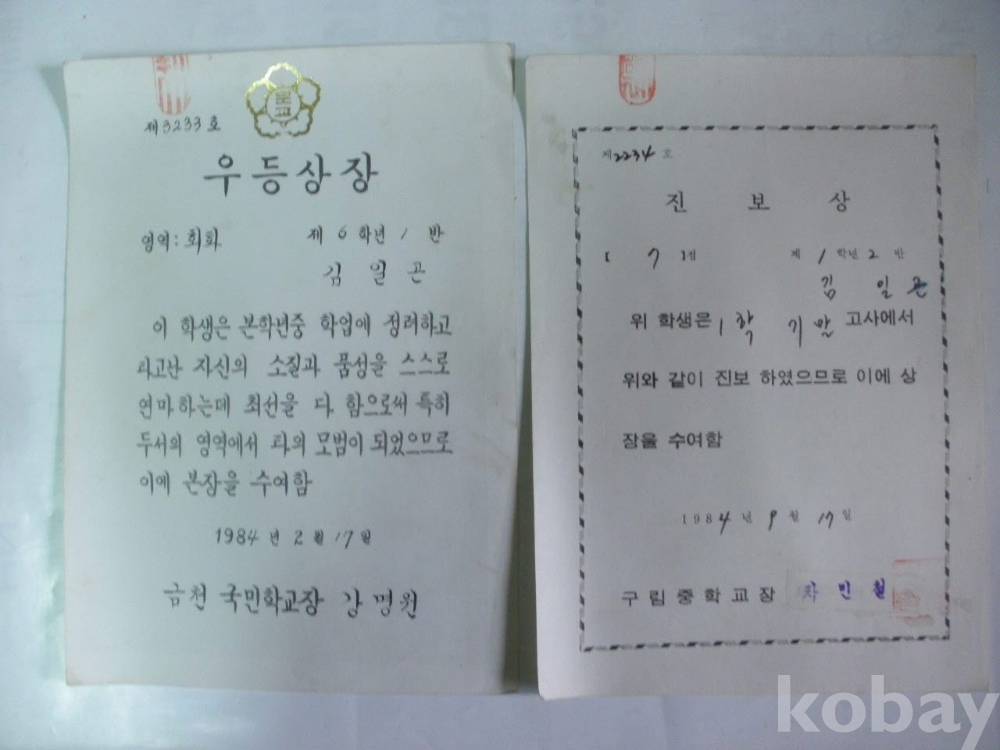 제3233호
우등상장
영역: 회화 제 6 학년 1 반
김 일 곤
이 학생은 본학년중 학업에 정려하고
타고난 자신의 소질과 품성을 스스로
연마하는데 최선을 다 함으로써 특히
두서의 영역에서 타의 모범이 되었으므로
이에 본장을 수여함
1984년 2월 17일
금천 국민학교장 강명원
제2234호
진 보 상
【 7 】점 제 1 학년 2 반
김 일 곤
위 학생은 1학 기말 고사에서
위와 같이 진보 하였으므로 이에 상
장을 수여함
1984년 9월 17일
구림중학교장 차민철
kobay